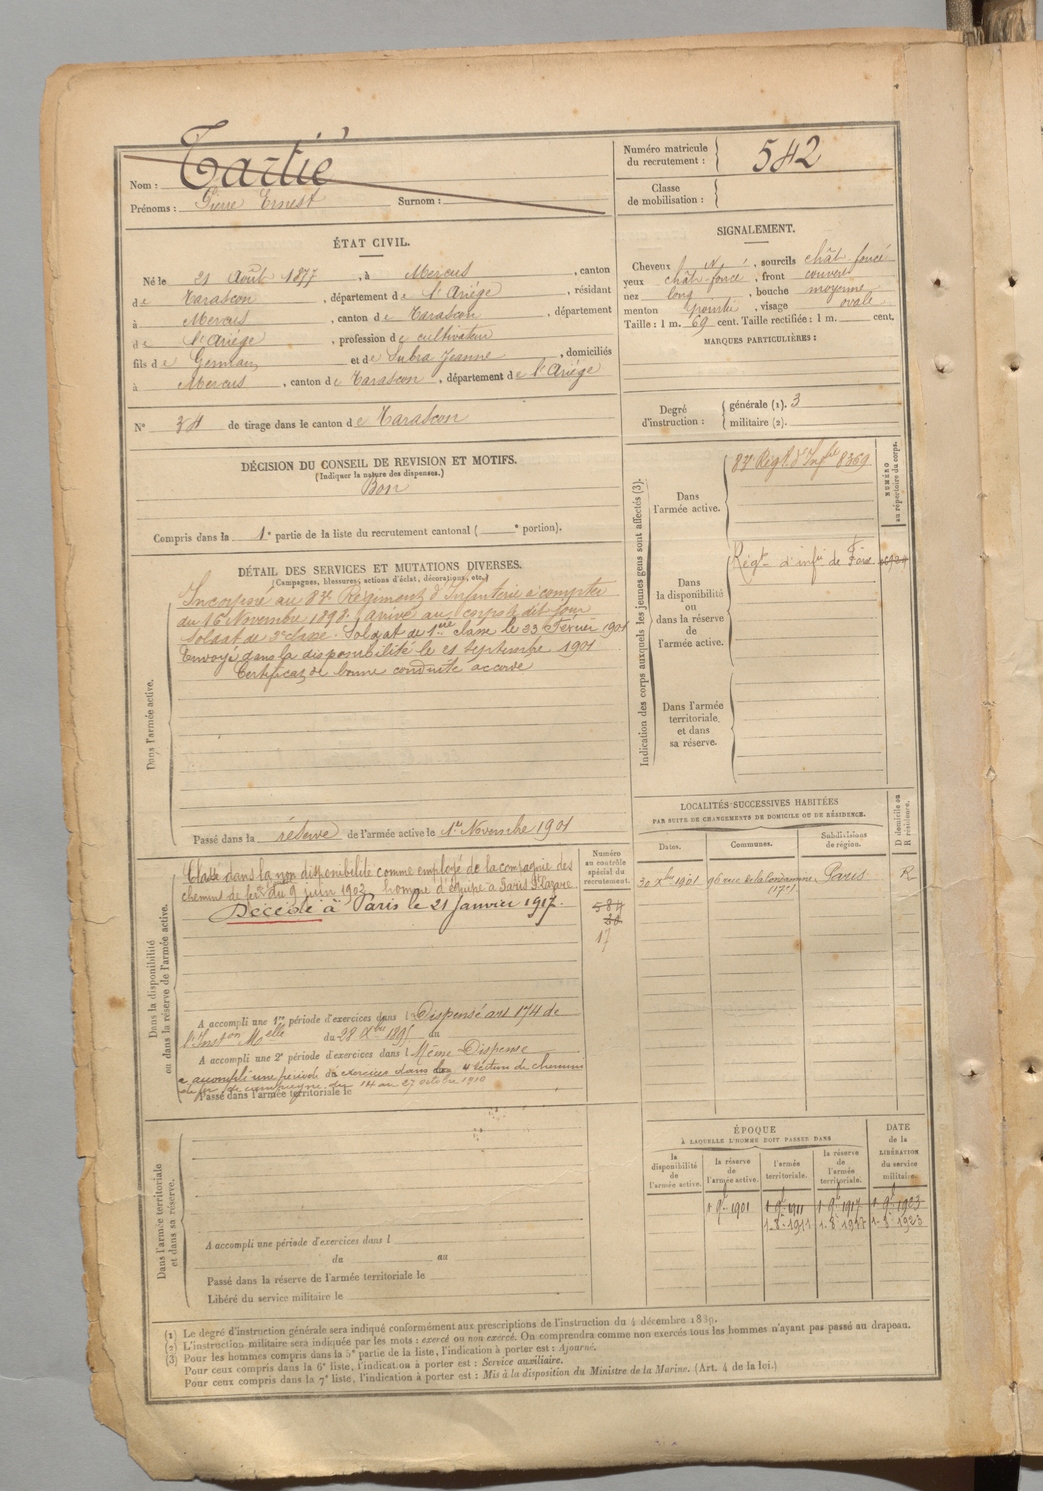 Nom : Tartié
Prénoms : Pierre Ernest Surnom :
Numéro matricule du recrutement : 542
Classe de mobilisation :
ÉTAT CIVIL.
Né le 21 Août 1877, à Mercus, canton
de Tarascon, département de l'Ariége, résidant
à Mercus, canton de Tarascon, département
de l'Ariége, profession de cultivateur
fils de Germain et de Subra Jeanne, domiciliés
à Mercus, canton de Tarascon, département de l'Ariége
N° 34 de tirage dans le canton de Tarascon
SIGNALEMENT.
Cheveux, sourcils chât-foncé
yeux chât-foncé, front couvert
nez long, bouche moyenne
menton pointu, visage ovale
Taille : 1 m. 69 cent. Taille rectifiée : 1 m. cent.
MARQUES PARTICULIÈRES :
Degré d'instruction : générale (1). 3
militaire (2).
DÉCISION DU CONSEIL DE REVISION ET MOTIFS.
(Indiquer la nature des dispenses.)
Bon
Compris dans la 1e partie de la liste du recrutement cantonal ( e portion).
Indication des corps auxquels les jeunes gens sont affectés (3).
NUMÉRO au répertoire du corps.
Dans l'armée active.
Régt d'Infie 8369
Dans la disponibilité ou dans la réserve de l'armée active.
Régt d'infie de Foix
Dans l'armée territoriale et dans sa réserve.
DÉTAIL DES SERVICES ET MUTATIONS DIVERSES.
(Campagnes, blessures, actions d'éclat, décorations, etc.)
Dans l'armée active.
Incorporé au Régiment d'Infanterie à compter
du 16 Novembre 1898. Arrivé au corps le dit jour
soldat de 2e classe. Soldat de 1ère classe le 23 Février 1901
Envoyé dans la disponibilité le 21 septembre 1901
Certificat de bonne conduite accordé
Passé dans la réserve de l'armée active le 1er Novembre 1901
LOCALITÉS SUCCESSIVES HABITÉES
PAR SUITE DE CHANGEMENTS DE DOMICILE OU DE RÉSIDENCE.
Dates. Communes. Subdivisions de région. D domicile ou R résidence.
30 Xbre 1901 96 rue de la Condamine Paris R
17e
Dans la disponibilité ou dans la réserve de l'armée active.
Numéro au contrôle spécial du recrutement.
584
17
Classé dans la non disponibilité comme employé de la compagnie des
chemins de fer du 9 juin 1903 homme d'équipe à Paris St Lazare
Décédé à Paris le 21 Janvier 1917.
A accompli une 1re période d'exercices dans l Dispensé art 174 de
l'Inston Melle du 28 Xbre 1895 au
A accompli une 2e période d'exercices dans l Même Dispense
a accompli une période d'exercices dans la 4e section de chemins
de fer de campagne du 14 au 27 octobre 1910
Passé dans l'armée territoriale le
Dans l'armée territoriale et dans sa réserve.
A accompli une période d'exercices dans l
du au
Passé dans la réserve de l'armée territoriale le
Libéré du service militaire le
ÉPOQUE
À LAQUELLE L'HOMME DOIT PASSER DANS
DATE de la LIBÉRATION du service militaire.
la disponibilité de l'armée active. la réserve de l'armée active. l'armée territoriale. la réserve de l'armée territoriale.
1 9bre 1901 1 9bre 1911 1 9bre 1917 1 9bre 1923
1-8bre 1911 1-8bre 1917 1-8bre 1923
(1) Le degré d'instruction générale sera indiqué conformément aux prescriptions de l'instruction du 4 décembre 1889.
(2) L'instruction militaire sera indiquée par les mots : exercé ou non exercé. On comprendra comme non exercés tous les hommes n'ayant pas passé au drapeau.
(3) Pour les hommes compris dans la 5e partie de la liste, l'indication à porter est : Ajourné.
Pour ceux compris dans la 6e liste, l'indication à porter est : Service auxiliaire.
Pour ceux compris dans la 7e liste, l'indication à porter est : Mis à la disposition du Ministre de la Marine. (Art. 4 de la loi.)